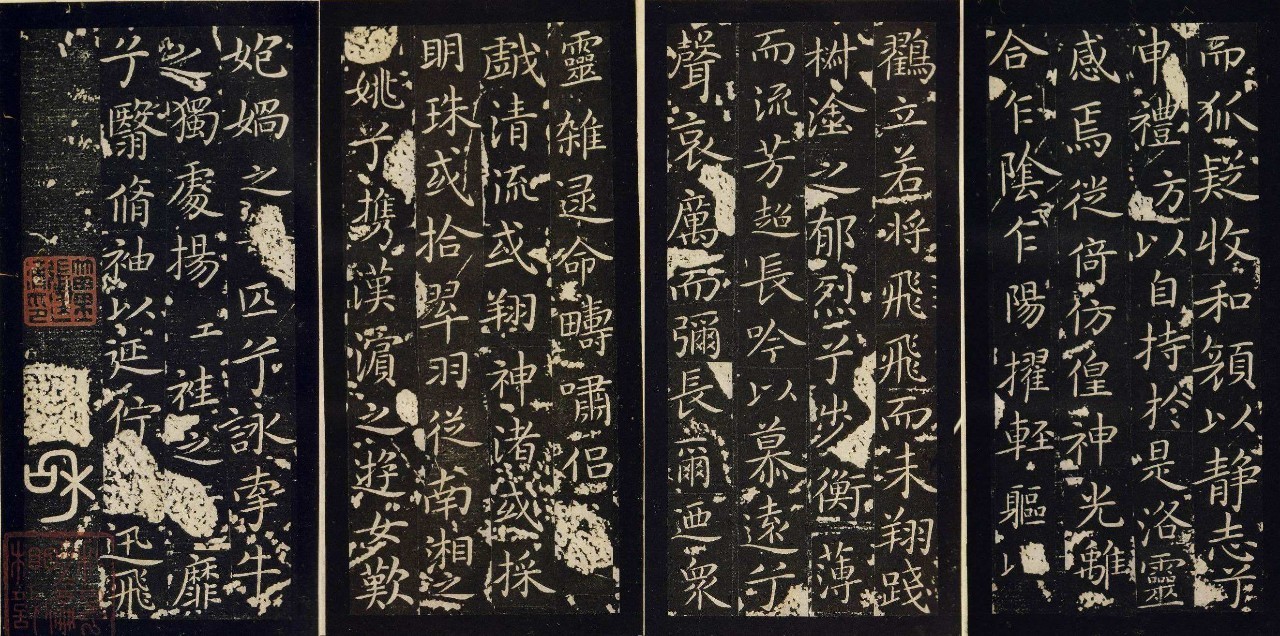 而狐疑收和顏以静志兮
申禮方以自持於是洛靈
感焉徙倚彷徨神光離
合乍陰乍陽擢輕軀以
鶴立若將飛飛而未翔踐
椒塗之郁烈兮步衡薄
而流芳超長吟以慕遠兮
聲哀厲而彌長爾迺衆
靈雜遝命疇嘯侶
戯清流或翔神渚或採
明珠或拾翠羽従南湘之
姚兮携漢濱之遊女歎
媧之匹兮詠牽牛
之獨處揚袿之靡
兮翳脩袖以延佇迅飛